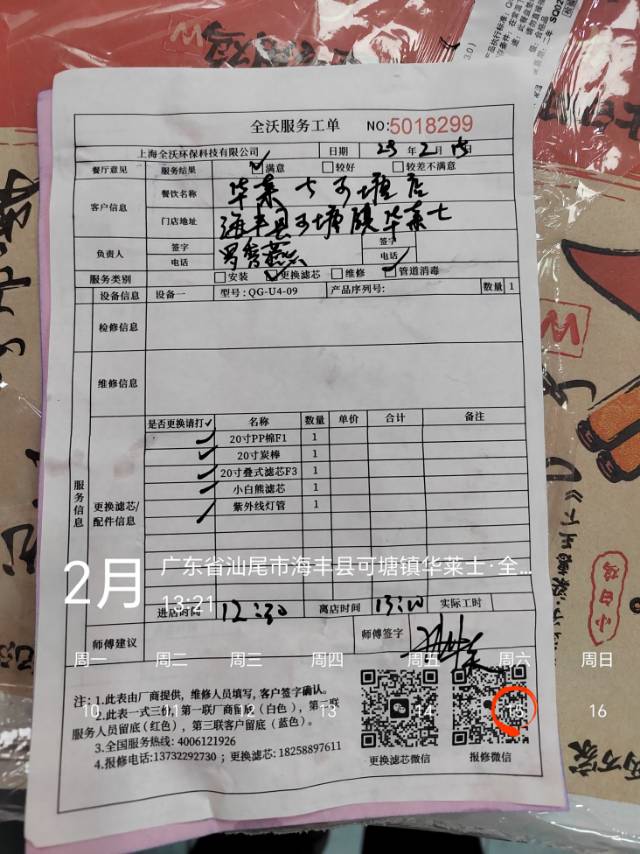 全沃服务工单 NO:5018299
上海全沃环保科技有限公司 日期 25 年 2 月 15
餐厅意见 服务结果 ☑满意 □较好 □较差不满意
客户信息 餐饮名称 华莱士可塘店
门店地址 海丰县可塘镇华莱士
负责人 签字 签字
电话 罗秀燕 电话
服务类别 □安装 ☑更换滤芯 □维修 ☑管道消毒
设备信息 设备一 型号:QG-U4-09 产品序列号: 数量 1
检修信息
维修信息
服务信息
更换滤芯/配件信息
是否更换请打✓ 名称 数量 单价 合计 备注
✓ 20寸PP棉F1 1
✓ 20寸炭棒 1
✓ 20寸叠式滤芯F3 1
✓ 小白熊滤芯 1
✓ 紫外线灯管 1
2月 广东省汕尾市海丰县可塘镇华莱士·全...
13:21
进店时间 12:30 离店时间 13:20 实际工时
师傅建议 师傅签字
周一 周二 周三 周四 周五 周六 周日
10 11 12 13 14 15 16
注:1.此表由厂商提供,维修人员填写,客户签字确认。
2.此表一式三份,第一联厂商留底(白色),第二联
服务人员留底(红色),第三联客户留底(蓝色)。
3.全国服务热线:4006121926
4.报修电话:13732292730;更换滤芯:18258897611
更换滤芯微信 报修微信
小白鸡